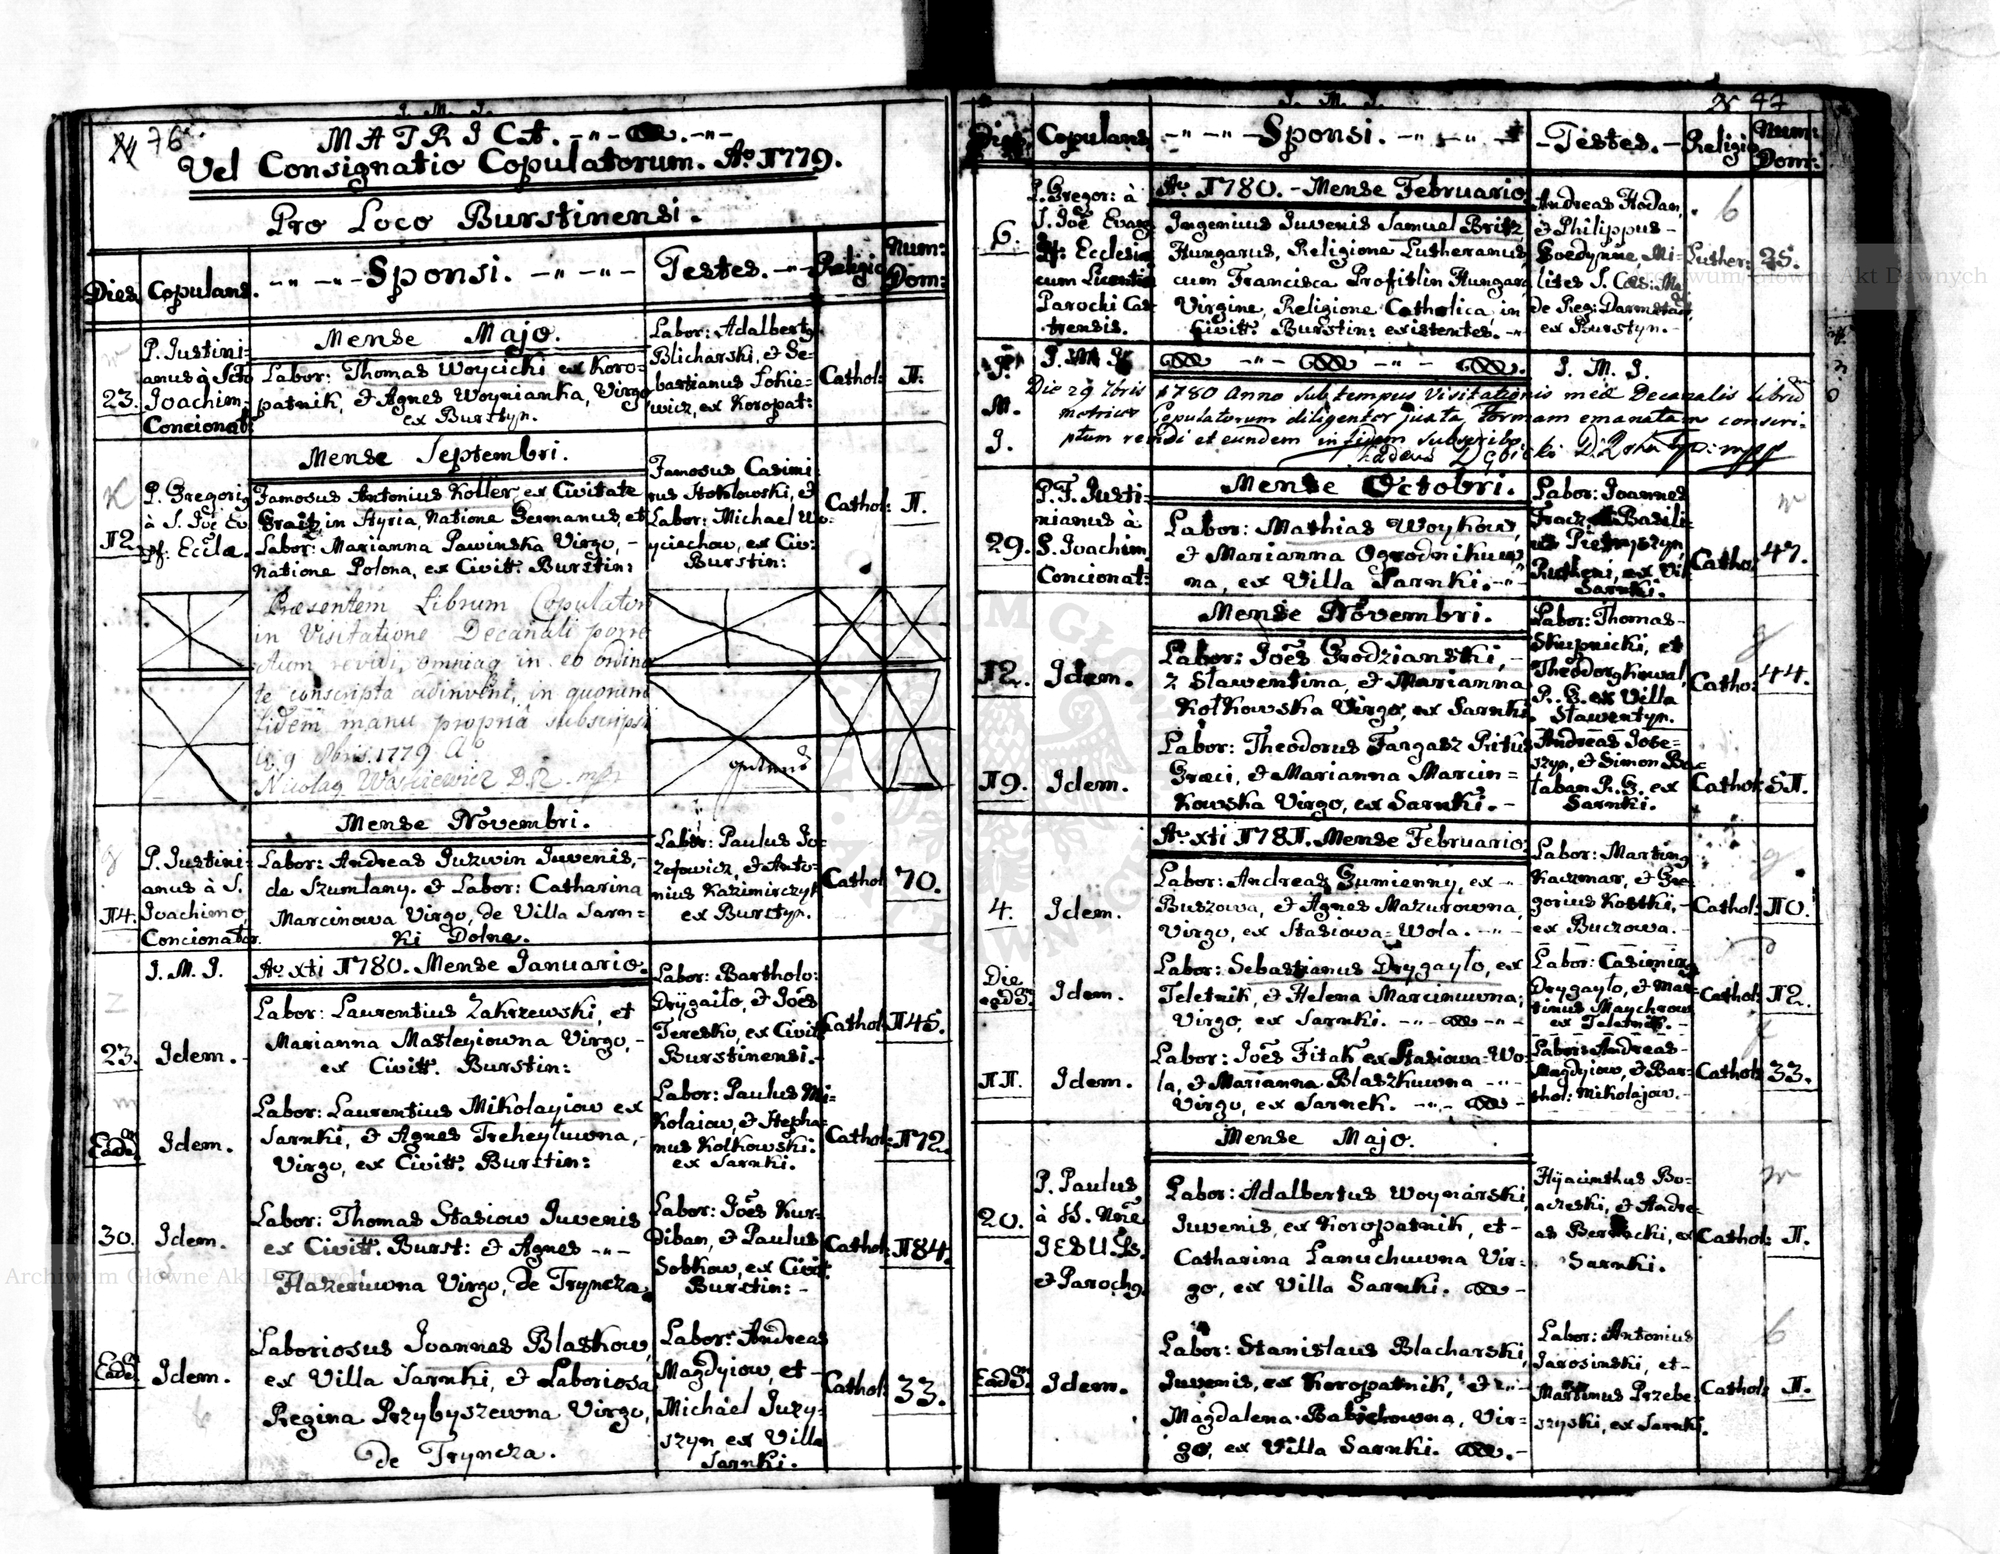 J. M. J.
76
MATRICA.
Vel Consignatio Copulatorum. Aº 1779.
Pro Loco Burstinensi.
Dies
Copulans.
Sponsi.
Testes.
Religio
Num: Dom:
Mense Majo.
23.
P. Justini-
anus à Scto
Joachim:
Concionat:
Labor: Thomas Woycicki ex Koro-
patnik, et Agnes Woynianka, Virgo
ex Burstyn.
Labor: Adalbertg
Blicharski, et Se-
bastianus Sokie-
wicz, ex Koropat:
Cathol:
1.
Mense Septembri.
12.
P. Gregorig
à S. Joe Ev.
pf. Eccla.
Famosus Antonius Koller ex Civitate
Graitz in Styria, Natione Germanus, et
Labor: Marianna Pawinska Virgo, -
Natione Polona, ex Civitt: Burstin:
Famosus Casimi-
rus Stoklowski, et
Labor: Michael Wo-
yciechow, ex Civ:
Burstin:
Cathol:
1.
Præsentem Librum Copulator
in Visitatione Decanali porre
ctum revidi, omniaq in eo ordina
te conscripta adinveni, in quorum
fidem manu propria subscripsi
9 Obris 1779 A
Nicolag Waskiewicz D.R. mpr
Mense Novembri.
14.
P. Justini-
anus à S.
Joachimo,
Concionator.
Labor: Andreas Juzwin Juvenis, -
de Szumlany. et Labor: Catharina
Marcinowa Virgo, de Villa Sarn-
ki Dolne.
Labor: Paulus Jo-
zefowicz, et Anto-
nius Kazimirczyk
ex Burstyn.
Cathol:
70.
J. M. J.
Aº xti 1780. Mense Januario.
23.
Idem.
Labor: Laurentius Zakrzewski, et
Marianna Masleyiowna Virgo, -
ex Civitt. Burstin:
Labor: Bartholo:
Drÿgaiło, et Joẽs
Teresko, ex Civitt
Burstinensi.
Cathol:
145.
Eadẽ
Idem.
Labor: Laurentius Mikolayiow ex
Sarnki, et Agnes Trcheyluwna,
Virgo, ex Civitt. Burstin:
Labor: Paulus Mi-
kolaiow, et Stepha-
nus Kolkowski.
ex Sarnki.
Cathol:
172.
30.
Idem.
Labor: Thomas Stasiow Juvenis
ex Civitt. Burst: et Agnes
Hazeriuwna Virgo, de Tryncza.
Labor: Joẽs Kur-
diban, et Paulus
Sobkow, ex Civit.
Burstin: -
Cathol:
184.
Eadẽ
Idem.
Laboriosus Joannes Blaskow,
ex Villa Sarnki, et Laboriosa
Regina Przybyszewna Virgo,
de Tryncza.
Labor: Andreas
Magdyiow, et -
Michael Juzy-
szyn ex Villa
Sarnki.
Cathol:
33.
J. M. J.
47
Dies
Copulans
Sponsi.
Testes.
Religio
Num: Dom:
Aº 1780. - Mense Februario
6.
P. Gregor: à
S. Joẽ Evag
pf: Ecclesiæ
cum Licentia
Parochi Cas-
trensis.
Ingenius Juvenis Samuel Britz,
Hungarus, Religione Lutheranus,
cum Francisca Profislin Hungara
Virgine, Religione Catholica, in
Civitt. Burstin: existentes.
Andreas Hodan,
et Philippus -
Goedynne, Mi-
lites S. Cæs: Ma.
de Reg: Darmstad
ex Burstyn. -
Luther:
35.
J. M. J.
J. M. J.
J.
M.
J.
Die 29 7bris 1780 Anno sub tempus Visitationis meæ Decanalis librū
metrices Copulatorum diligenter juxta Formam emanatam conscri-
ptum revidi et eundem in fidem subscribo.
Mense Octobri.
29.
P. F. Justi-
nianus à
S. Joachim
Concionat:
Labor: Mathias Woykow,
et Marianna Ogrodnikuw-
na, ex Villa Sarnki.
Labor: Joannes
Tracz Basili-
us Pietryszyn,
Rutheni, ex Vil
Sarnki.
Cathol:
47.
Mense Novembri.
12.
Idem.
Labor: Joẽs Grodzianski, -
z Slawentina, et Marianna
Kołkowska Virgo, ex Sarnki.
Labor: Thomas -
Skupnicki, et
Theodorg Kowal,
R. G. ex Villa
Slawentyn.
Catho:
44.
19.
Idem.
Labor: Theodorus Fargasz Ritus
Græci, et Marianna Marcin=
kowska Virgo, ex Sarnki. -
Andreas Jose-
szyn, et Simon Ba-
łaban R. G. ex
Sarnki.
Cathol:
51.
Aº xti 1781. Mense Februario
4.
Idem.
Labor: Andreas Gumienny, ex
Buszowa, et Agnes Mazurowna,
Virgo, ex Stasiowa=Wola.
Labor: Marting
Kaczmar, et Gre-
gorius Kostki, -
ex Buczowa.
Cathol:
10.
Die
eadẽ.
Idem.
Labor: Sebastianus Drygayło, ex
Teletnik, et Helena Marcinuwna,
Virgo, ex Sarnki.
Labor: Casimirg
Drygayło, et Mar-
tinus Maychrow
ex Teletnik. -
Cathol:
12.
11.
Idem.
Labor: Joẽs Fitak ex Stasiowa=Wo-
la, et Marianna Blaszkuwna
Virgo, ex Sarnek.
Labor: Andreas -
Magdyiow, et Bar-
thol: Mikolajow.
Cathol:
33.
Mense Majo.
20.
P. Paulus
à SS. Nõie
JESU Ss.
et Parochg.
Labor: Adalbertus Woynarski
Juvenis, ex Koropatnik, et -
Catharina Lanuchuwna Vir-
go, ex Villa Sarnki.
Hÿacinthus Bo-
aczeski, et Andre-
as Bernacki, ex
Sarnki.
Cathol:
1.
Eadẽ.
Idem.
Labor: Stanislaus Blacharski,
Juvenis, ex Koropatnik, et
Magdalena Babiehowna, Vir-
go, ex Villa Sarnki.
Labor: Antonius
Jarosinski, et -
Martinus Przebe-
szyski, ex Sarnki.
Cathol:
1.
Archiwum Główne Akt Dawnych
Archiwum Główne Akt Dawnych